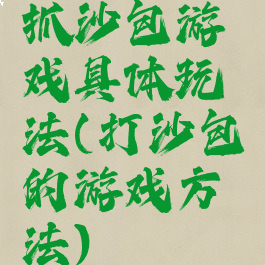 抓沙包游
戏具体玩
法(打沙包
的游戏方
法)